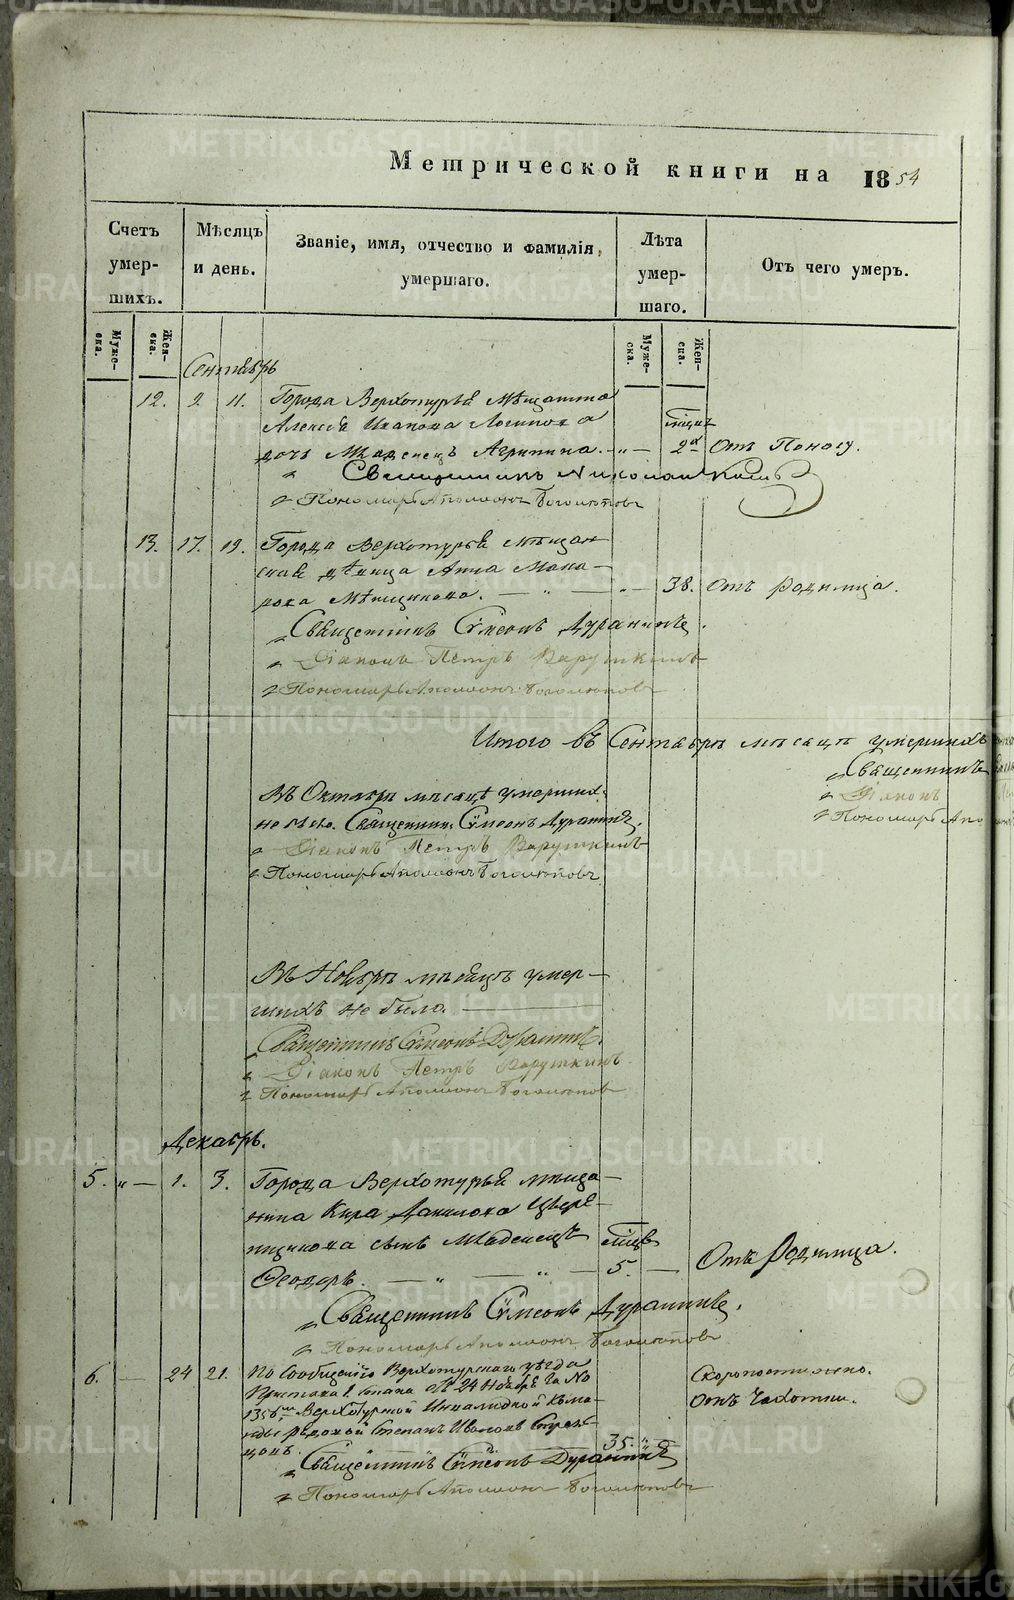 Метрической книги на 1854
Счетъ умер-шихъ.
Мѣсяцъ и день.
Званіе, имя, отчество и фамилія умершаго.
Лѣта умер-шаго.
Отъ чего умеръ.
Муже-ска.
Жен-ска.
Муже-ска.
Жен-ска.
Сентябрь
12. 2 11. Города Верхотурья мѣщанина
Алексѣя Иванова
дочь Младенецъ Агрипина. 2 Отъ Поносу.
Священникъ Николай
Пономарь Аполлонъ Боголюповъ
13. 17. 19. Города Верхотурья мѣщан-
ская дѣвица Анна Мака-
рова Мѣнщикова. 38. Отъ родимца.
Священникъ Сѷмеонъ Дуранинъ.
Діаконъ Петръ Варушкинъ
Пономарь Аполлонъ Боголюповъ
Итого въ Сентябрѣ мѣсяцѣ умершихъ
Священникъ
Діаконъ
Пономарь Апо
Въ Октябрѣ мѣсяцѣ умершихъ
не было. Священникъ Сѷмеонъ Дуранинъ.
Діаконъ Петръ Варушкинъ
Пономарь Аполлонъ Боголюповъ
Въ Ноябрѣ мѣсяцѣ умер-
шихъ не было.
Священникъ Сѷмеонъ Дуранинъ.
Діаконъ Петръ Варушкинъ.
Пономарь Аполлонъ Боголюповъ
Декабрь.
5. 1. 3. Города Верхотурья мѣща-
нина Кира Данилова
сынъ Младенецъ
Ѳеодоръ. 5. Отъ Родимца.
Священникъ Сѷмеонъ Дуранинъ.
Пономарь Аполлонъ Боголюповъ
6. 24 21. По сообщенію Верхотурскаго уѣзда Скоропостижно.
Пристава 2 стана отъ 24 Ноября за No Отъ Чахотки.
1356 Верхотурской Инвалидной Кома-
нды рядовой Степанъ Ивановъ
35.
Священникъ Сѷмеонъ Дуранинъ
Пономарь Аполлонъ Боголюповъ
METRIKI.GASO-URAL.RU